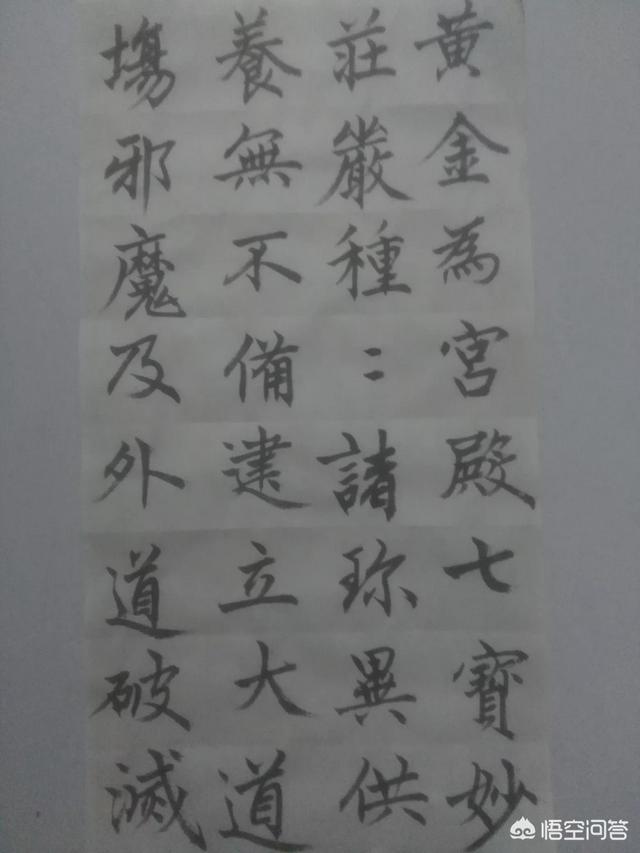 黄金為宮殿七寶妙
莊嚴種〻諸珎異供
養無不備建立大道
塲邪魔及外道破滅
悟空问答